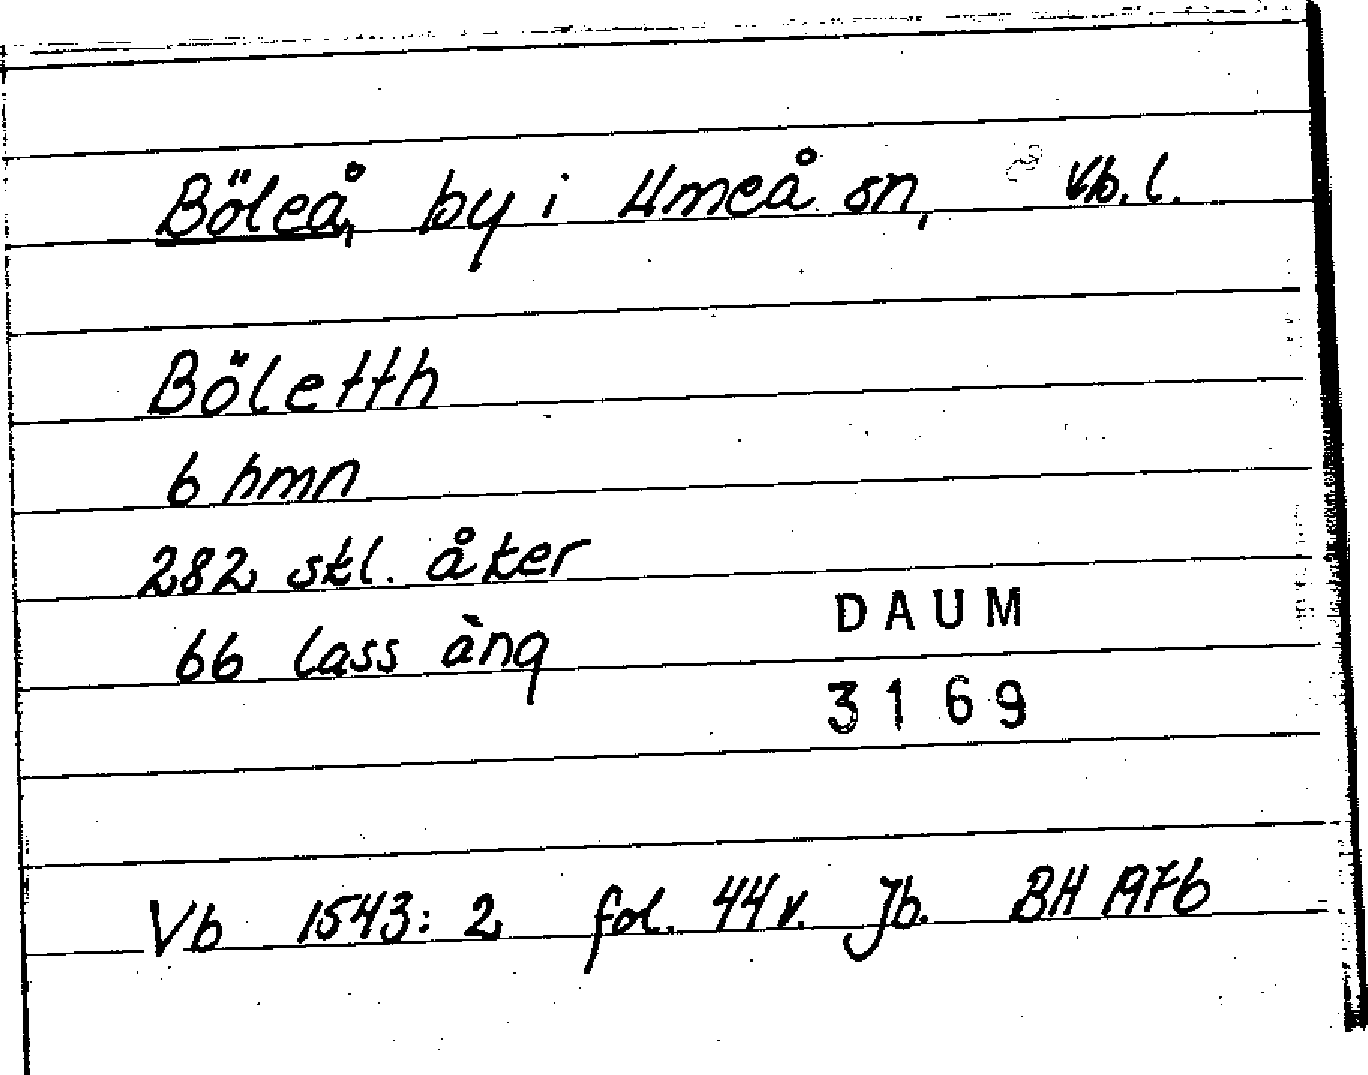 Böleå, by i Umeå sn, Vb.l.
Böletth
6 hmn
282 skl. åker
66 lass äng
DAUM
3169
Vb 1543:2 fol. 44 v. Jb. BH 1976